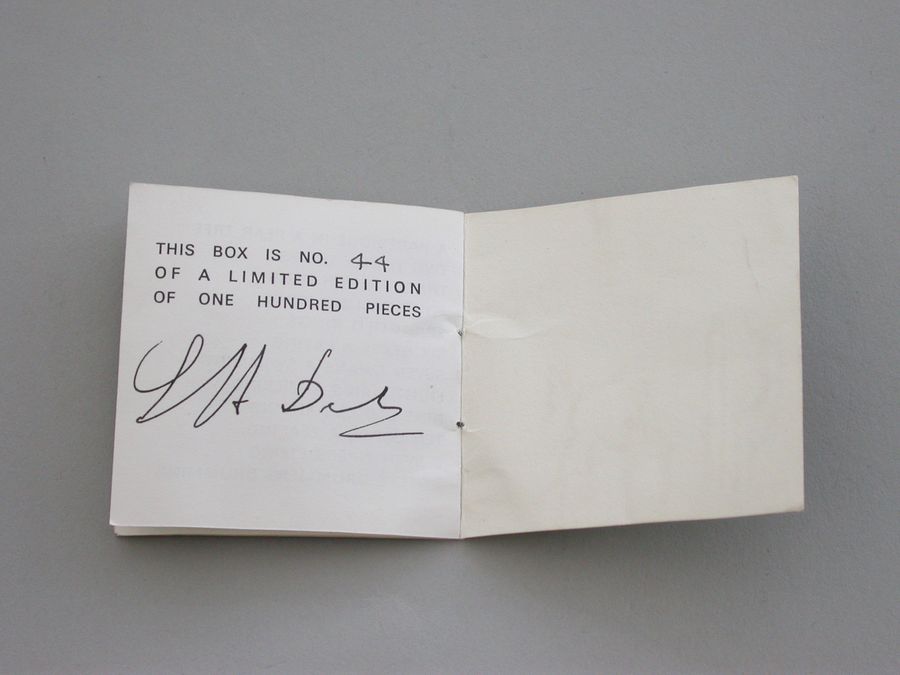 THIS BOX IS NO. 44
OF A LIMITED EDITION
OF ONE HUNDRED PIECES